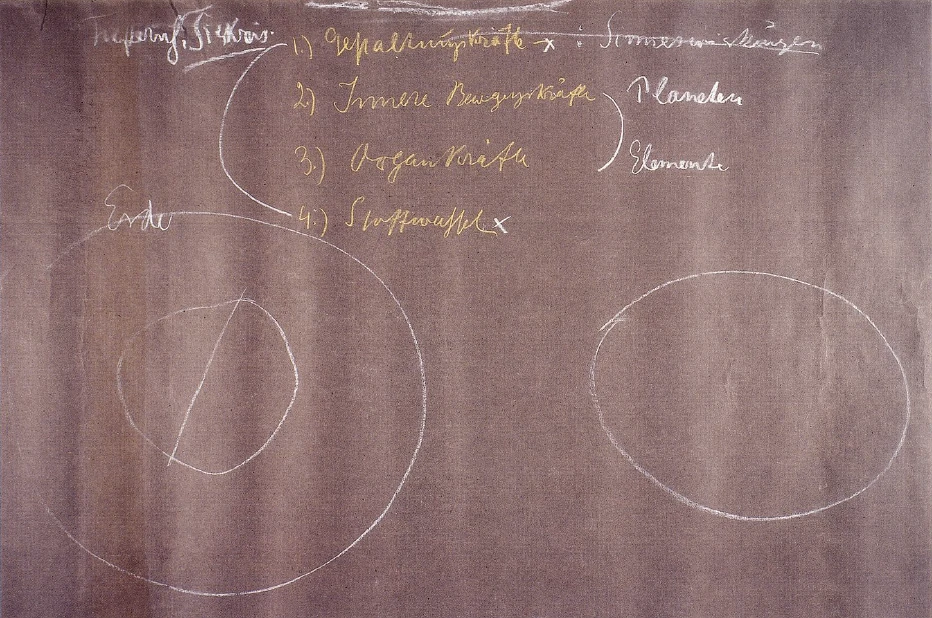 Tierkreis. 1.) Gestaltungskräfte x :
2.) Innere Bewegungskräfte Planeten
3.) Organkräfte Elemente
Erde 4.) Stoffwechsel x